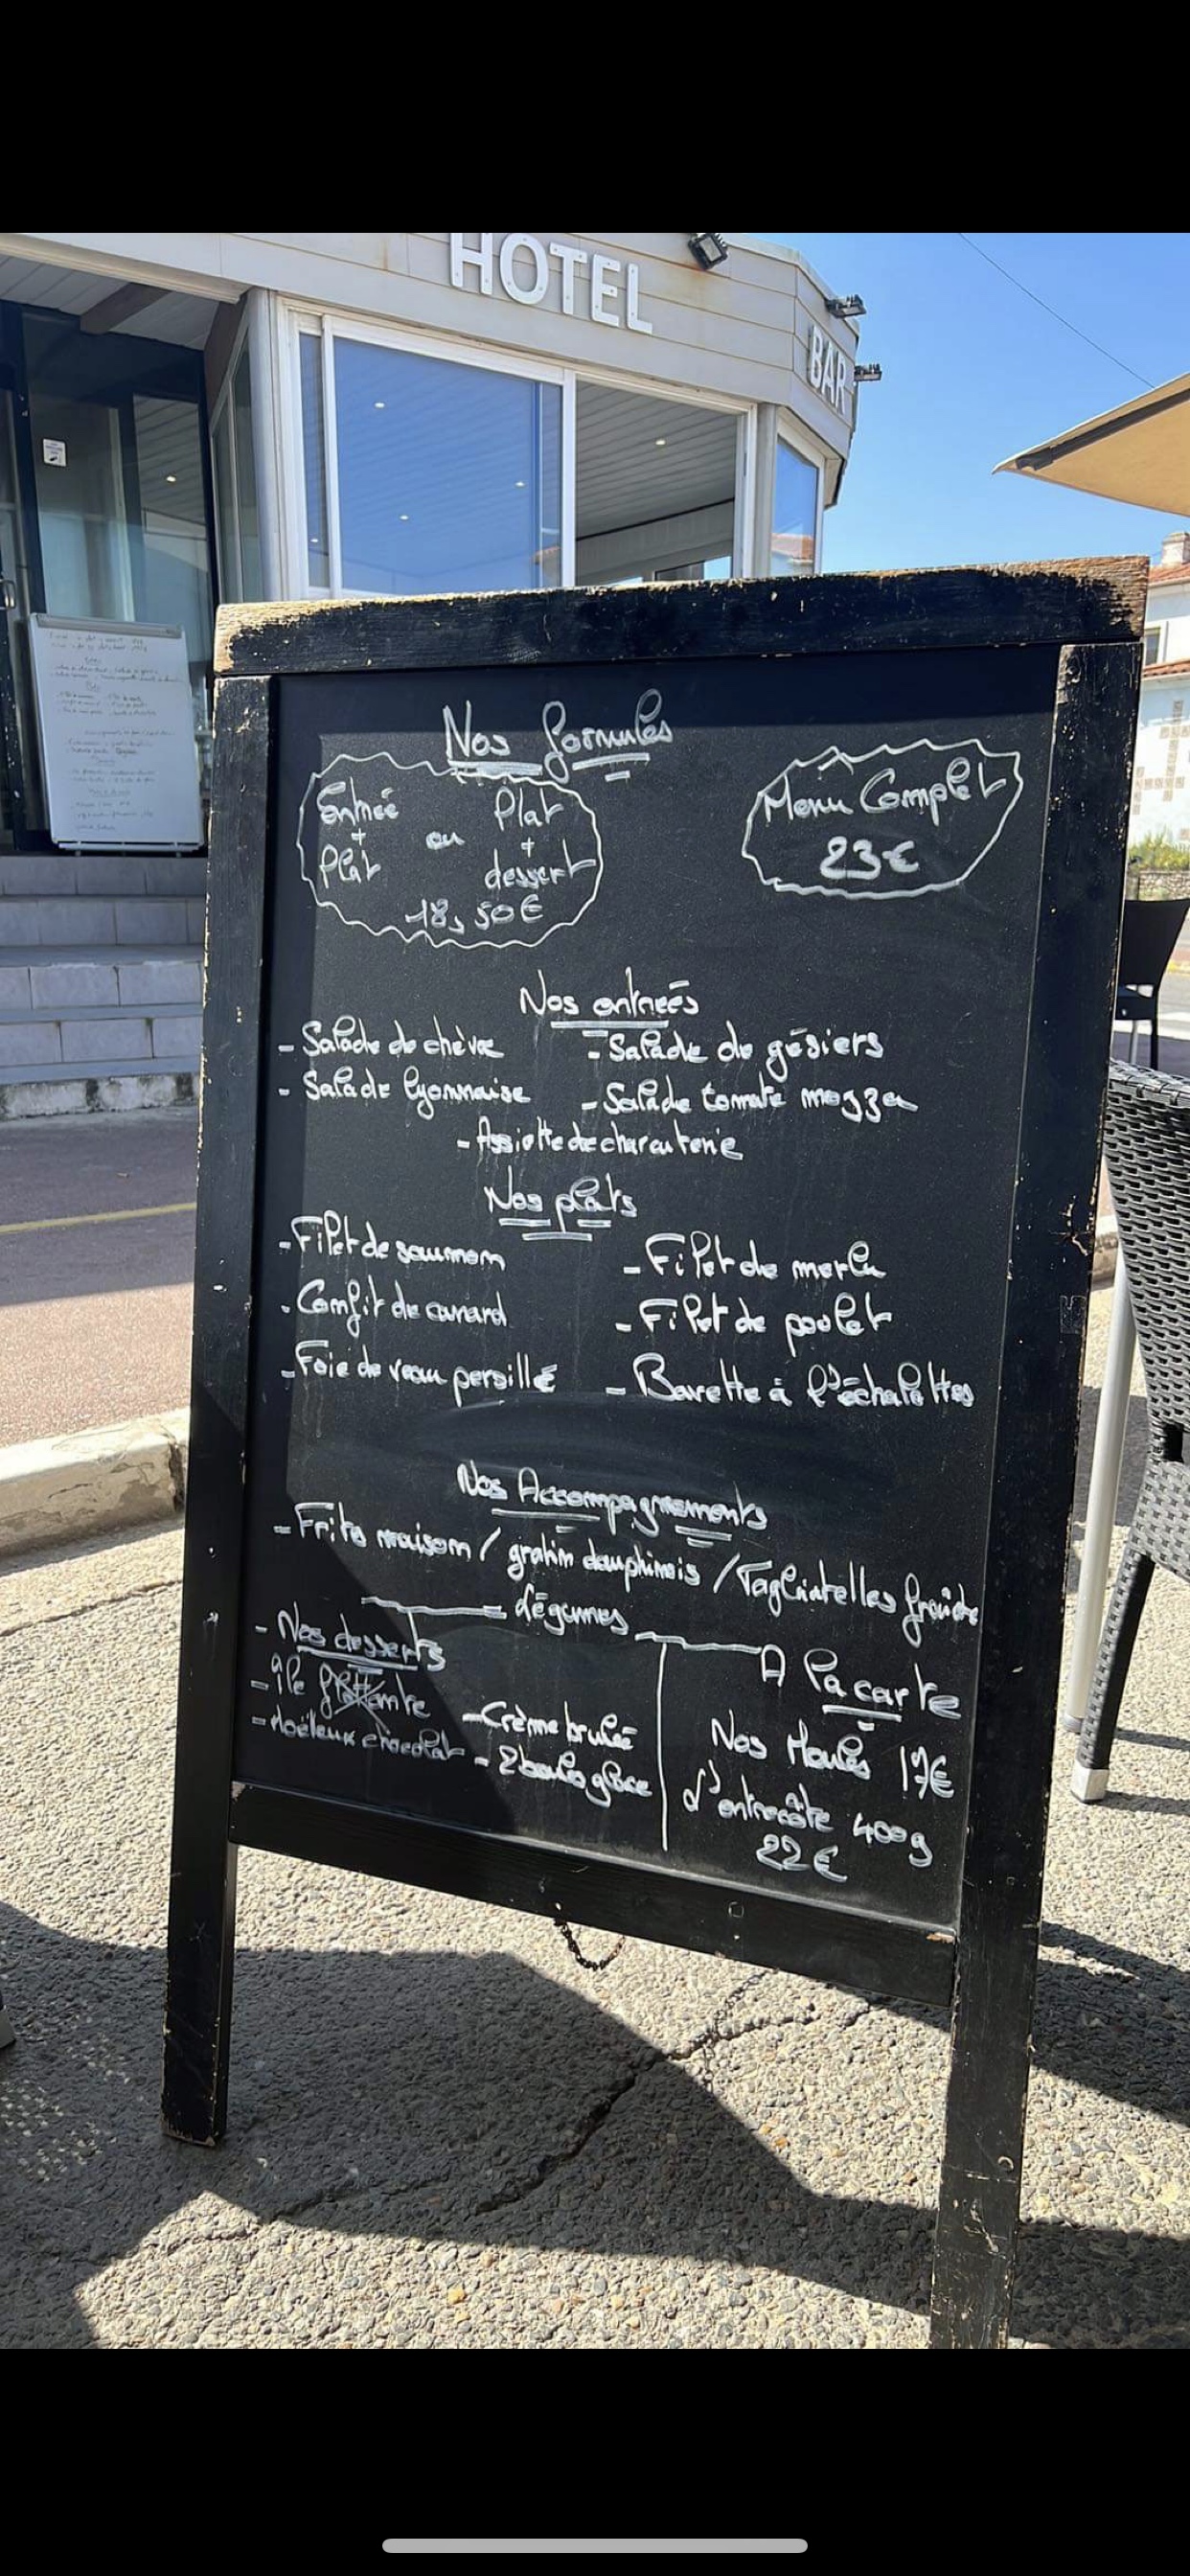 HOTEL
BAR
Nos formules
Entrée + Plat ou Plat + dessert
18,50€
Menu Complet
23€
Nos entrées
- Salade de chèvre - Salade de gésiers
- Salade lyonnaise - Salade tomate mozza
- Assiette de charcuterie
Nos plats
- Filet de saumon - Filet de merlu
- Confit de canard - Filet de poulet
- Foie de veau persillé - Bavette à l'échalottes
Nos Accompagnements
- Frites maison / gratin dauphinois / Tagliatelles fraîche
Légumes
- Nos desserts
- île flottante
- Moëleux chocolat
- Crème brulée
- 2 boules glace
A la carte
Nos Moules 17€
L'entrecôte 400g
22€